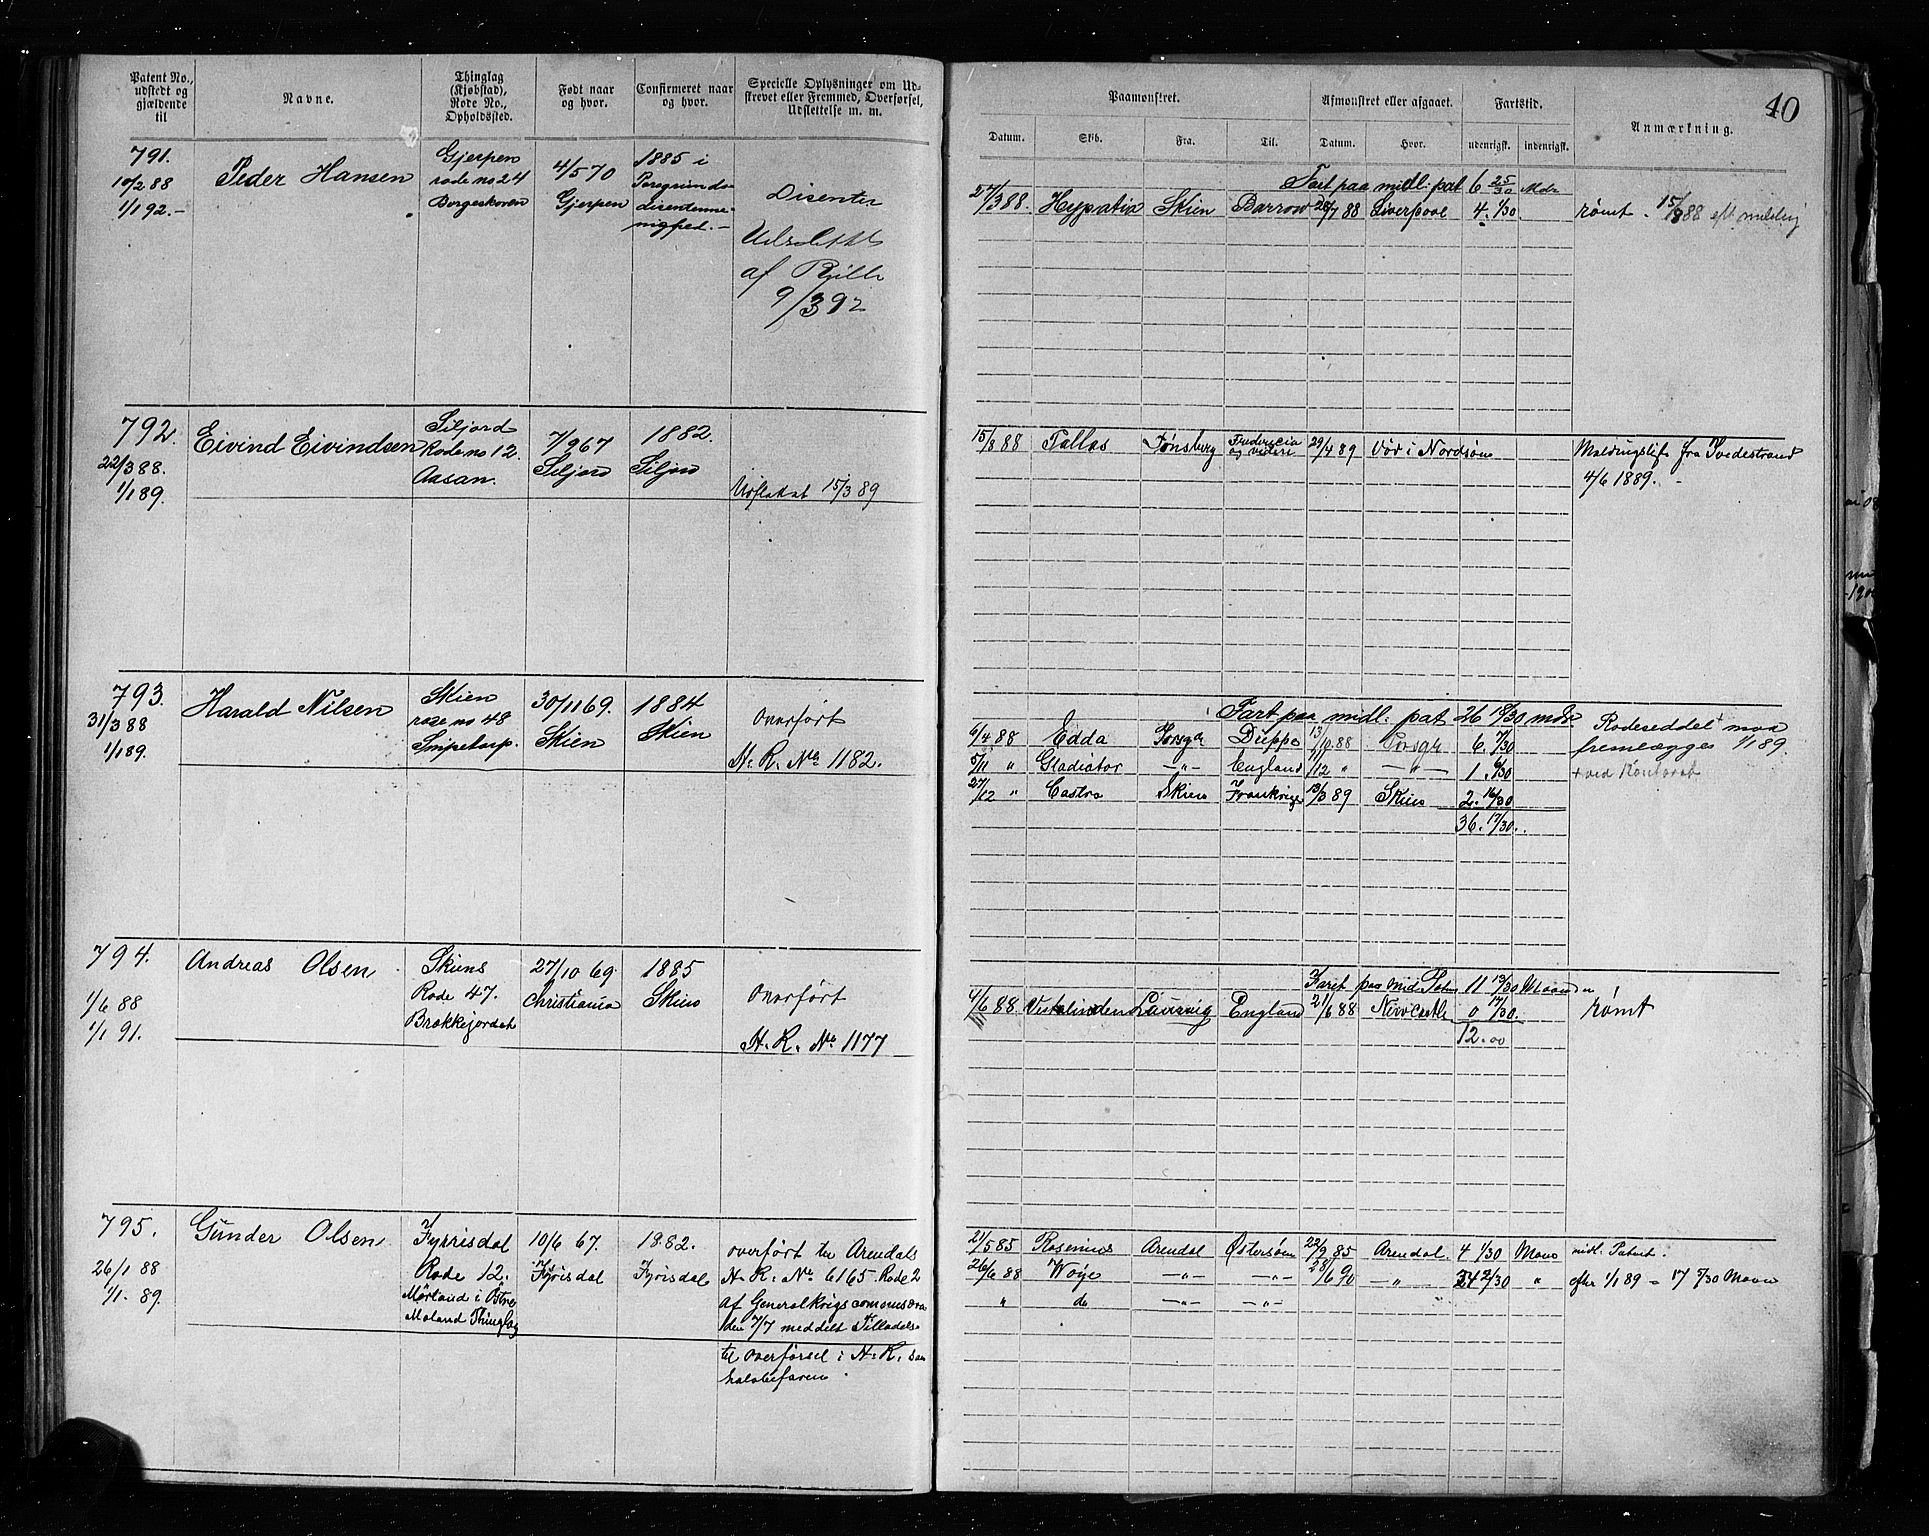 Patent No., udstedt og gjældende til
Navne.
Thinglag (Kjøbstad), Rode No., Opholdssted.
Født naar og hvor.
Confirmeret naar og hvor.
Specielle Oplysninger om Udskrevet eller Fremmed, Overførsel, Udslettelse m. m.
Paamønstret.
Afmønstret eller afgaaet.
Fartstid.
Anmærkning.
40
Datum.
Skib.
Fra.
Til.
Datum.
Hvor.
udenrigsk.
indenrigsk.
791.
10/2 88
1/1 92.-
Peder Hansen
Gjerpen
rode no 24
Borgeskoven
4/5 70
Gjerpen
1885 i
disenterme-
nighed.-
Disenter
af Rulle
9/3 92
Fart paa midl. pat 6 25/30 Mdr
27/3 88. Hypatia Skien Barrow 28/7 88 Liverpool 4. 1/30
rømt. 15/8 88 eft melding
792.
22/3 88.
1/1 89.
Eivind Eivindsen
Siljord
Rode no 12.
Aasan.
7/9 67
Siljord
1882.
Siljord
Udslettet 15/3 89
15/8 88 Pallas Tønsberg Fredericia og videre 29/4 89 Død i Nordsøen
fra Tvedestrand
4/6 1889. -
793.
31/3 88
1/1 89.
Harald Nilsen
Skien
rode no 48
Snipetorp.
30/11 69.
Skien
1884
Skien
Overført
H. R. No 1182.
Fart paa midl. pat 26 18/30 mdr
6/4 88 Edda Porsgr Dieppe 13/10 88 Porsgr 6. 7/30
5/11 " Gladiator -"- England /12 " -"- 1. 6/30
27/12 " Castro Skien Frankrige 13/3 89 Skien 2. 16/30
36. 17/30.
Rodeseddel + maa
fremlægges 1/1 89
+ ved Kontoret
794.
1/6 88
1/1 91.
Andreas Olsen
Skiens
Rode 47.
Brekkejordet
27/10 69.
Christiania
1885
Skien
Overført
H. R. No 1177
Fart paa mid. Paten 11 13/30 Maaneder
4/6 88 Vestalinden Laurvig England 21/6 88 Newcastle 0 17/30.
12.00
rømt
795.
26/1 88
1/1. 89.
Gunder Olsen
Fyrrisdal
Rode 12.
Mørland i Østre
Moland Thinglag
10/6 67.
Fyrisdal
1882.
Fyrisdal
overført til Arendals
H. R. No 6165 Rode 2
af Generalkrigscommissæren
den 7/7 meddelt Tilladelse
til overførsel i H. R. som
halvbefaren.
21/5 85 Rosenius Arendal Østersøen 22/9 85 Arendal 4 1/30 Maan midl. Patent.
26/6 88 Woye -"- -"- 28/6 90 -"- 24 2/30 " efter 1/1 89 = 17 5/30 Maan
" do -"- -"-